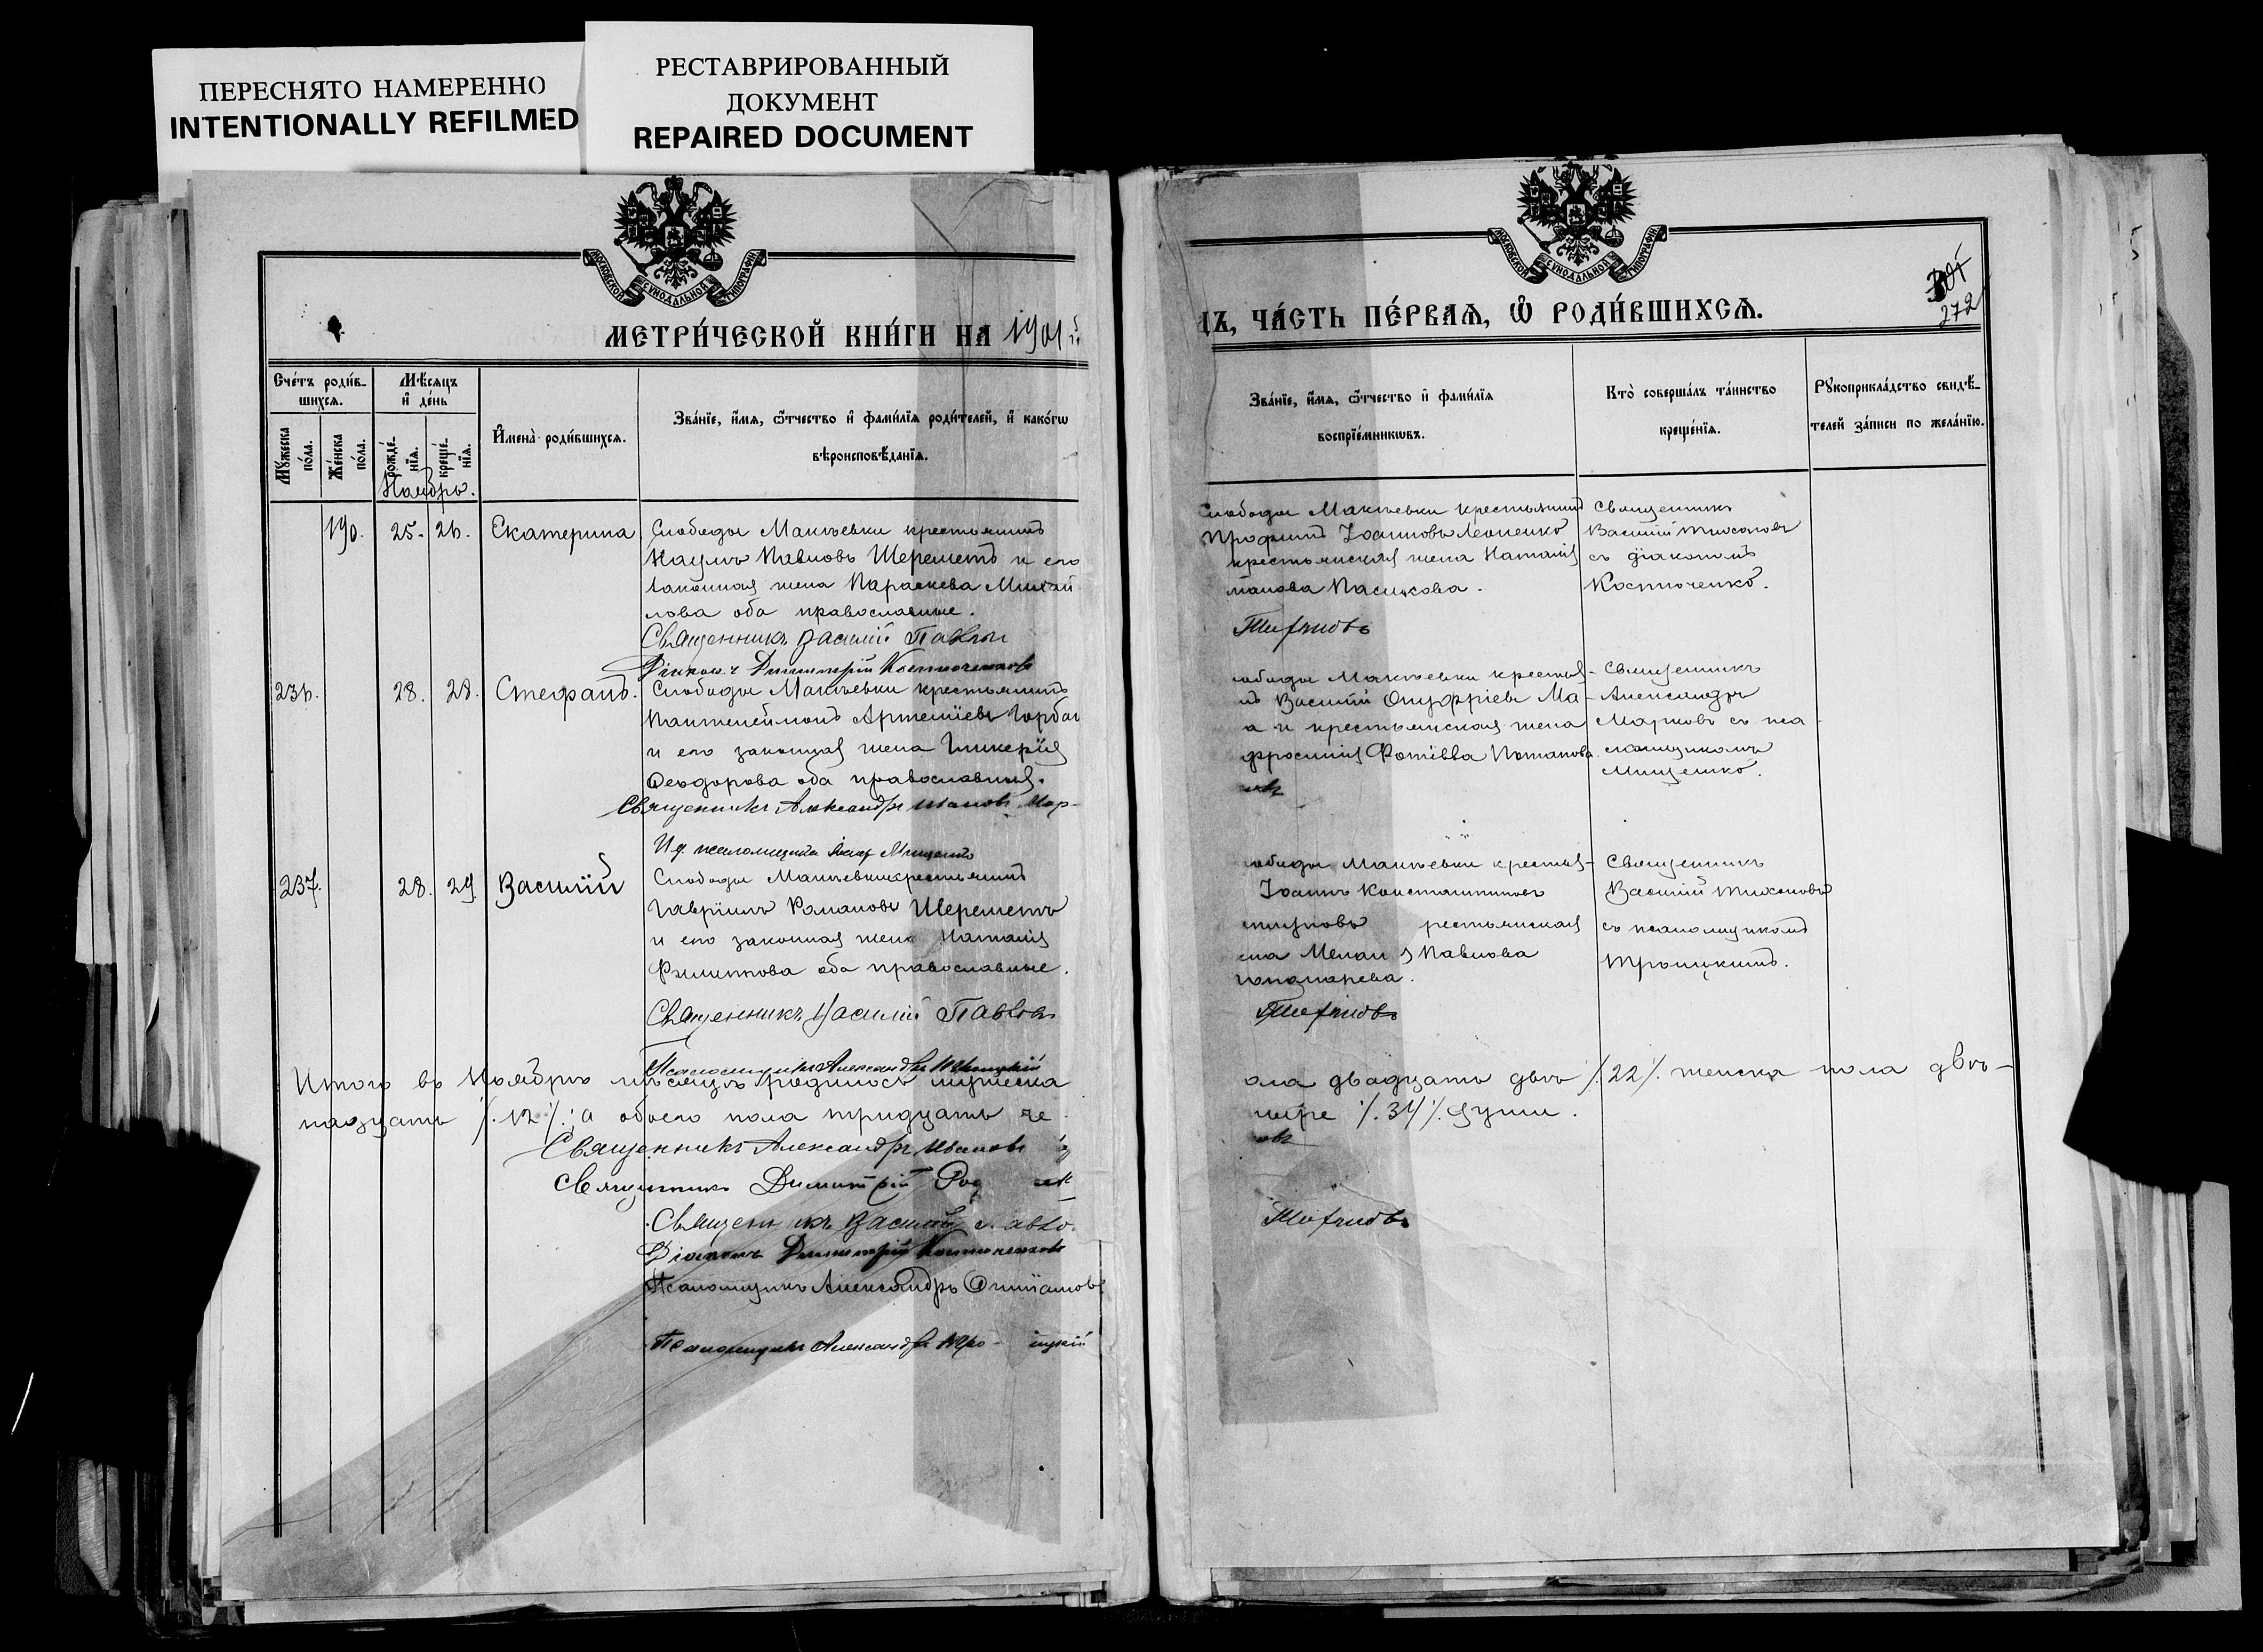 ПЕРЕСНЯТО НАМЕРЕННО
INTENTIONALLY REFILMED
РЕСТАВРИРОВАННЫЙ
ДОКУМЕНТ
REPAIRED DOCUMENT
МОСКОВСКОЙ СѴНОДАЛЬНОЙ ТИПОГРАФІИ
МЕТРИ́ЧЕСКОЙ КНИ́ГИ НА 1901
Сче́тъ роди́в-
шихся.
Мꙋ́жеска
по́ла.
Же́нска
по́ла.
Мѣ́сяцъ
и҆ де́нь
рожде́-
нїя.
креще́-
нїя.
Ноябрь.
И҆мена̀ роди́вшихся.
Зва́нїе, и҆́мя, ѻ҆́тчество и҆ фами́лїя роди́телей, и҆ како́гѡ
вѣроисповѣ́данїя.
190. 25. 26. Екатерина.
Слободы Макѣевки крестьянинъ
Наумъ Павловъ Шереметъ и его
законная жена Параскева Михай
лова оба православные.
Священникъ Василій Павлов
Діаконъ Димитрій Костюченковъ
236. 28. 28. Стефанъ.
Слободы Макѣевки крестьянинъ
Пантелеймонъ Артеміевъ Горбач
и его законная жена Гликерія
Ѳеодорова оба православные.
Священникъ Александръ Ивановъ Мар-
И. д. псаломщика Мищенко
237. 28. 29. Василій
Слободы Макѣевки крестьянинъ
Гавріилъ Романовъ Шереметъ
и его законная жена Наталія
Филиппова оба православные.
Священникъ Василій Павлов
Псаломщикъ Александръ Троицкій
Итого въ Ноябрѣ мѣсяцѣ родилось мужеска
надцать /.12/.; а обоего пола тридцать че
Священникъ Александръ Ивановъ
Священникъ Димитрій
Священ икъ Василій
Діаконъ Димитрій Костюченковъ
Псаломщикъ Александръ
Псаломщикъ Александръ Тро- ицкій
МОСКОВСКОЙ СѴНОДАЛЬНОЙ ТИПОГРАФІИ
ДЪ, ЧА́СТЬ ПЕ́РВАЯ, Ѡ҆ РОДИ́ВШИХСЯ.
272
Зва́нїе, и҆́мя, ѻ҆́тчество и҆ фами́лїя
воспрїе́мникѡвъ.
Кто̀ соверша́лъ та́инство
креще́нїя.
Рꙋкоприкла́дство свидѣ́-
телей за́писи по жела́нїю.
Слободы Макѣевки крестьянинъ
Трофимъ Іоанновъ Леоненко
крестьянская жена Наталія
Пасикова.
Тихоновъ
Священникъ
Василій Тихоновъ
съ діакономъ
Костюченко.
лободы Макѣевки крестья-
нъ Василій Онуфріевъ Ма-
а и крестьянская жена
фросинія Фотіева Потапова.
овъ
Священникъ
Александръ
Марковъ съ пса-
ломщикомъ
Мищенко.
лободы Макѣевки крестья-
Іоаннъ Константиновъ
рестьянская
ена Мелан я Павлова
Пономарева.
Тихоновъ
Священникъ
Василій Тихоновъ
съ псаломщикомъ
Троицкимъ.
ола двадцать два /.22/. женска пола двѣ-
тыре /.34/. души.
овъ
Тихоновъ